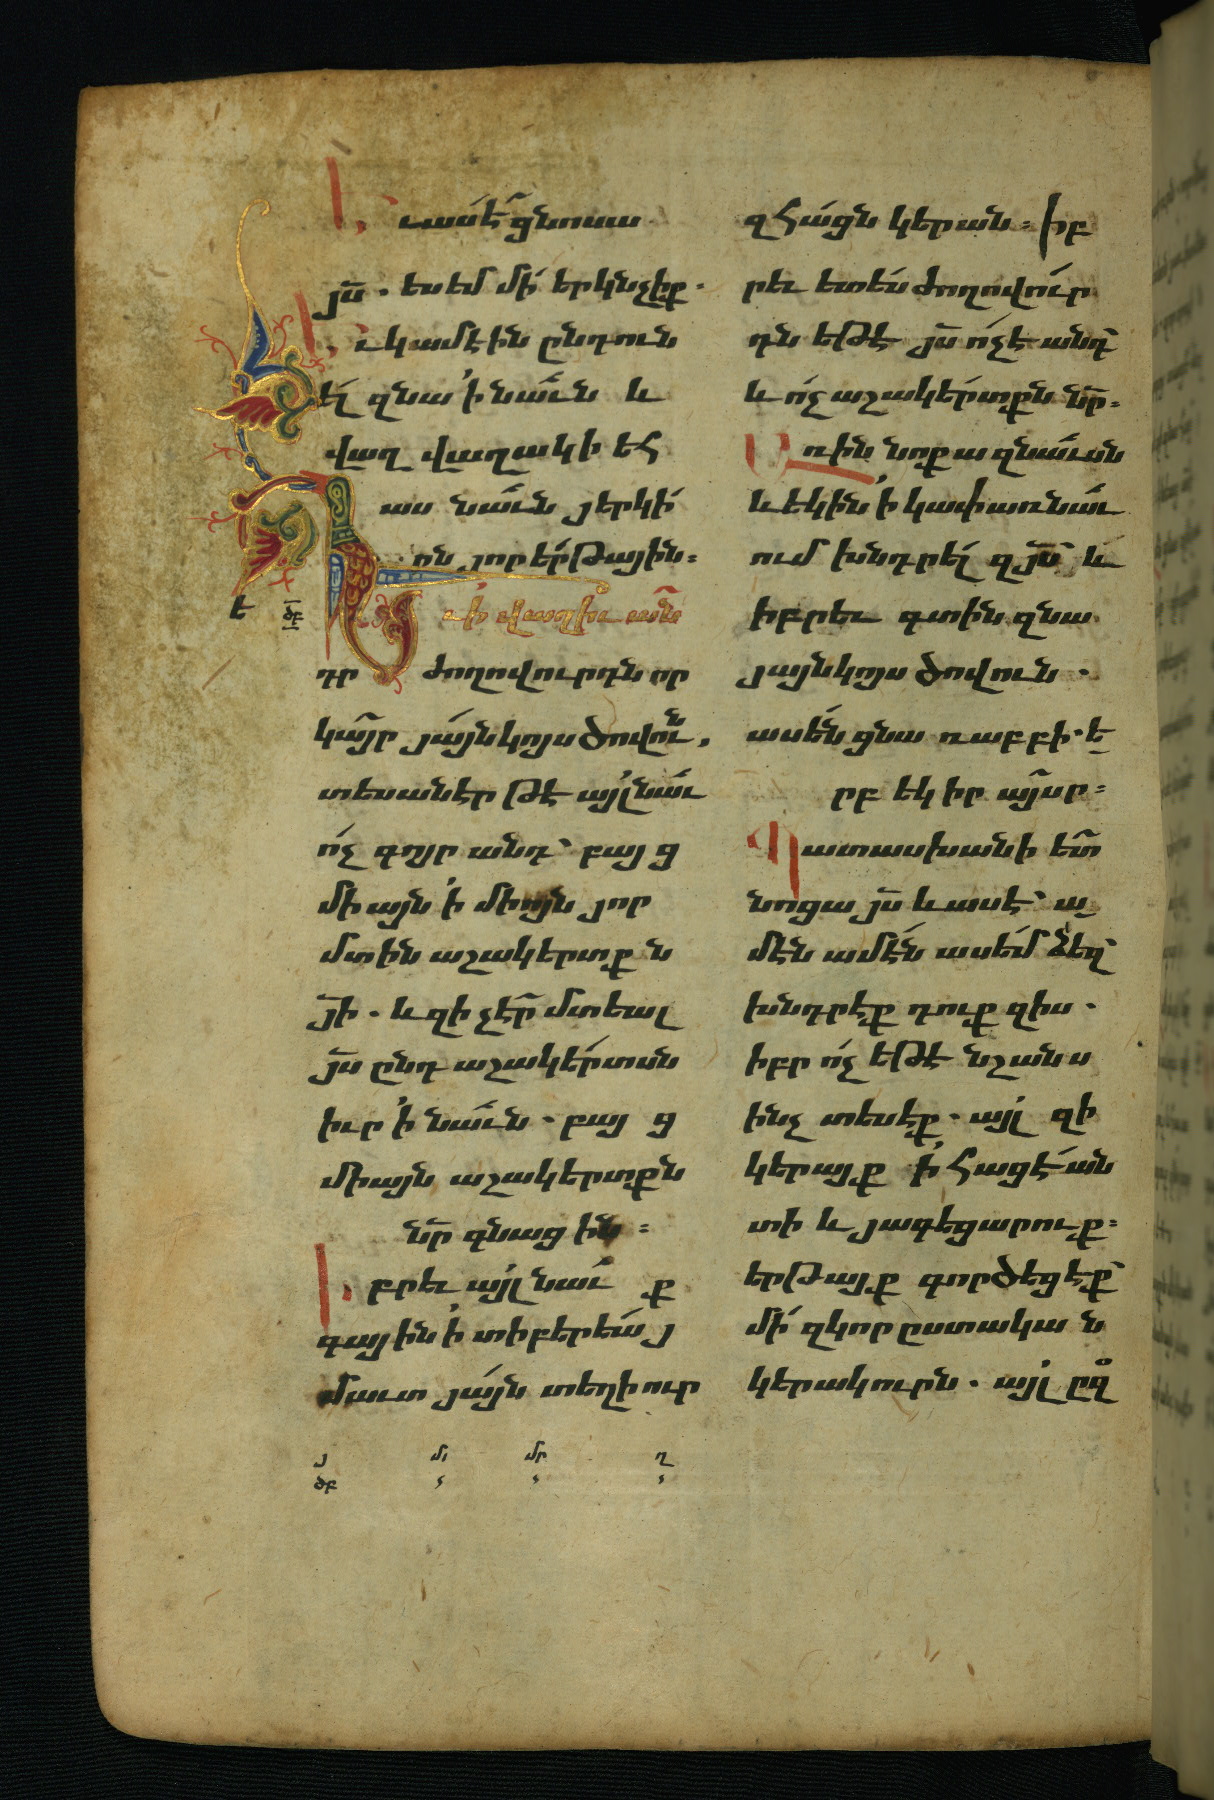 Եւ ասէ ցնոսա
յս. ես եմ մի երկնչիք.
Եւ կամէին ընդուն
ել զնա ի նաւն և
վաղ վաղակի եհ
աս նաւն յերկի
ռն յոր երթային:
Եւ ի վաղիւ ան
դր ժողովուրդն որ
կայր յայնկոյս ծովուն,
տեսանէր թէ այլ նաւ
ոչ գոյր անդ՝ բայց
միայն ի միոյն յոր
մտին աշակերտքն
յի. և զի չէր մտեալ
յս ընդ աշակերտսն
իւր ի նաւն. բայց
միայն աշակերտքն
նր գնացին:
Իբրեւ այլ նաւք
գային ի տիբերեայ
մաւտ յայն տեղի ուր
զհացն կերան: Իբ
րեւ ետես ժողովուր
դն եթէ յս ոչ է անդ՝
և ոչ աշակերտքն նր:
Առին նոքա զնաւսն
և եկին ի կափառնաւ
ում խնդրել զյս՝ և
իբրեւ գտին զնա
յայնկոյս ծովուն.
ասեն ցնա ռաբբի. ե
րբ եկիր այսր:
Պատասխանի ետ
նոցա յս և ասէ՝ ա
մէն ամէն ասեմ ձեզ՝
խնդրէք դուք զիս.
իբր ոչ եթէ նշանս
ինչ տեսէք. այլ զի
կերայք ի հացէ ան
տի և յագեցարուք:
երթայք գործեցէք՝
մի զկորըստական
կերակուրն. այլ ըզ
է ծբ
յ մւ մր ղ
ծբ